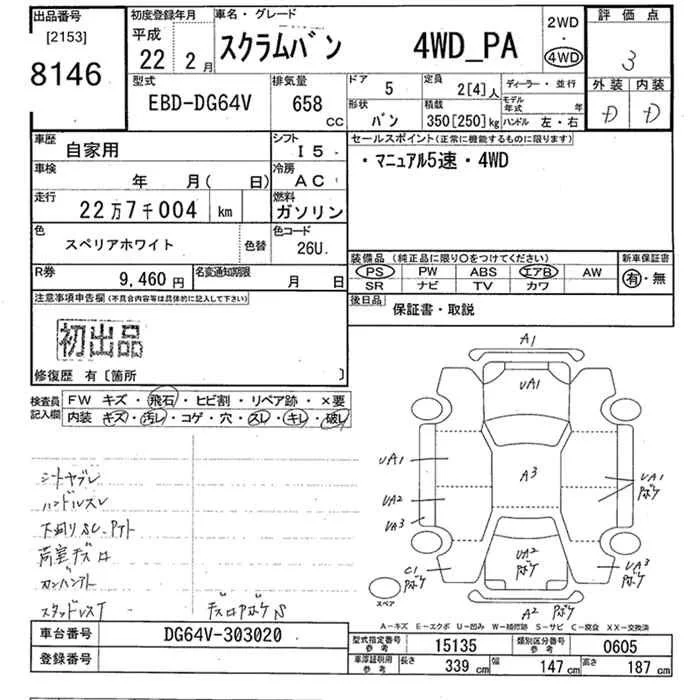 出品番号
[2153]
8146
初度登録年月
平成
22 2月
車名・グレード
スクラムバン 4WD_PA
2WD
・
4WD
評価点
3
外装 内装
D D
型式
EBD-DG64V
排気量
658 CC
ドア
5
定員
2[4]人
形状
バン
積載
350[250]kg
ディーラー・並行
モデル年式 年
ハンドル 左・右
車歴
自家用
シフト
I5
車検
年 月( 日)
冷房
AC
走行
22万7千004 km
燃料
ガソリン
色
スペリアホワイト
色替
色コード
26U
R券
9,460円
名変通知期限
月 日
セールスポイント(正常に機能するものに限ります)
・マニュアル5速・4WD
装備品 (純正品に限り○をつけてください)
PS PW ABS エアB AW
SR ナビ TV カワ
新車保証書
有・無
後日品
保証書・取説
注意事項申告欄(不具合内容等は具体的に記入して下さい)
初出品
修復歴 有〔箇所 〕
検査員記入欄
FW キズ・飛石・ヒビ割・リペア跡・×要
内装 キズ・汚レ・コゲ・穴・スレ・キレ・破レ
シートヤブレ
ハンドルスレ
下回りSL.Pアト
荷室キズロ
スタッドレスT
A1
UA1
UA1
UA2
UA3
A3
UA1
Pボケ
UA2
Pボケ
C1
Pボケ
UA3
Pボケ
A2 Pボケ
スペア
A-キズ E-エクボ U-凹み W-補修跡 S-サビ C-腐食 XX-交換済
車台番号
DG64V-303020
登録番号
型式指定番号
参考
15135
類別区分番号
参考
0605
車庫証明用
参考
長さ
339 cm
幅
147 cm
高さ
187 cm